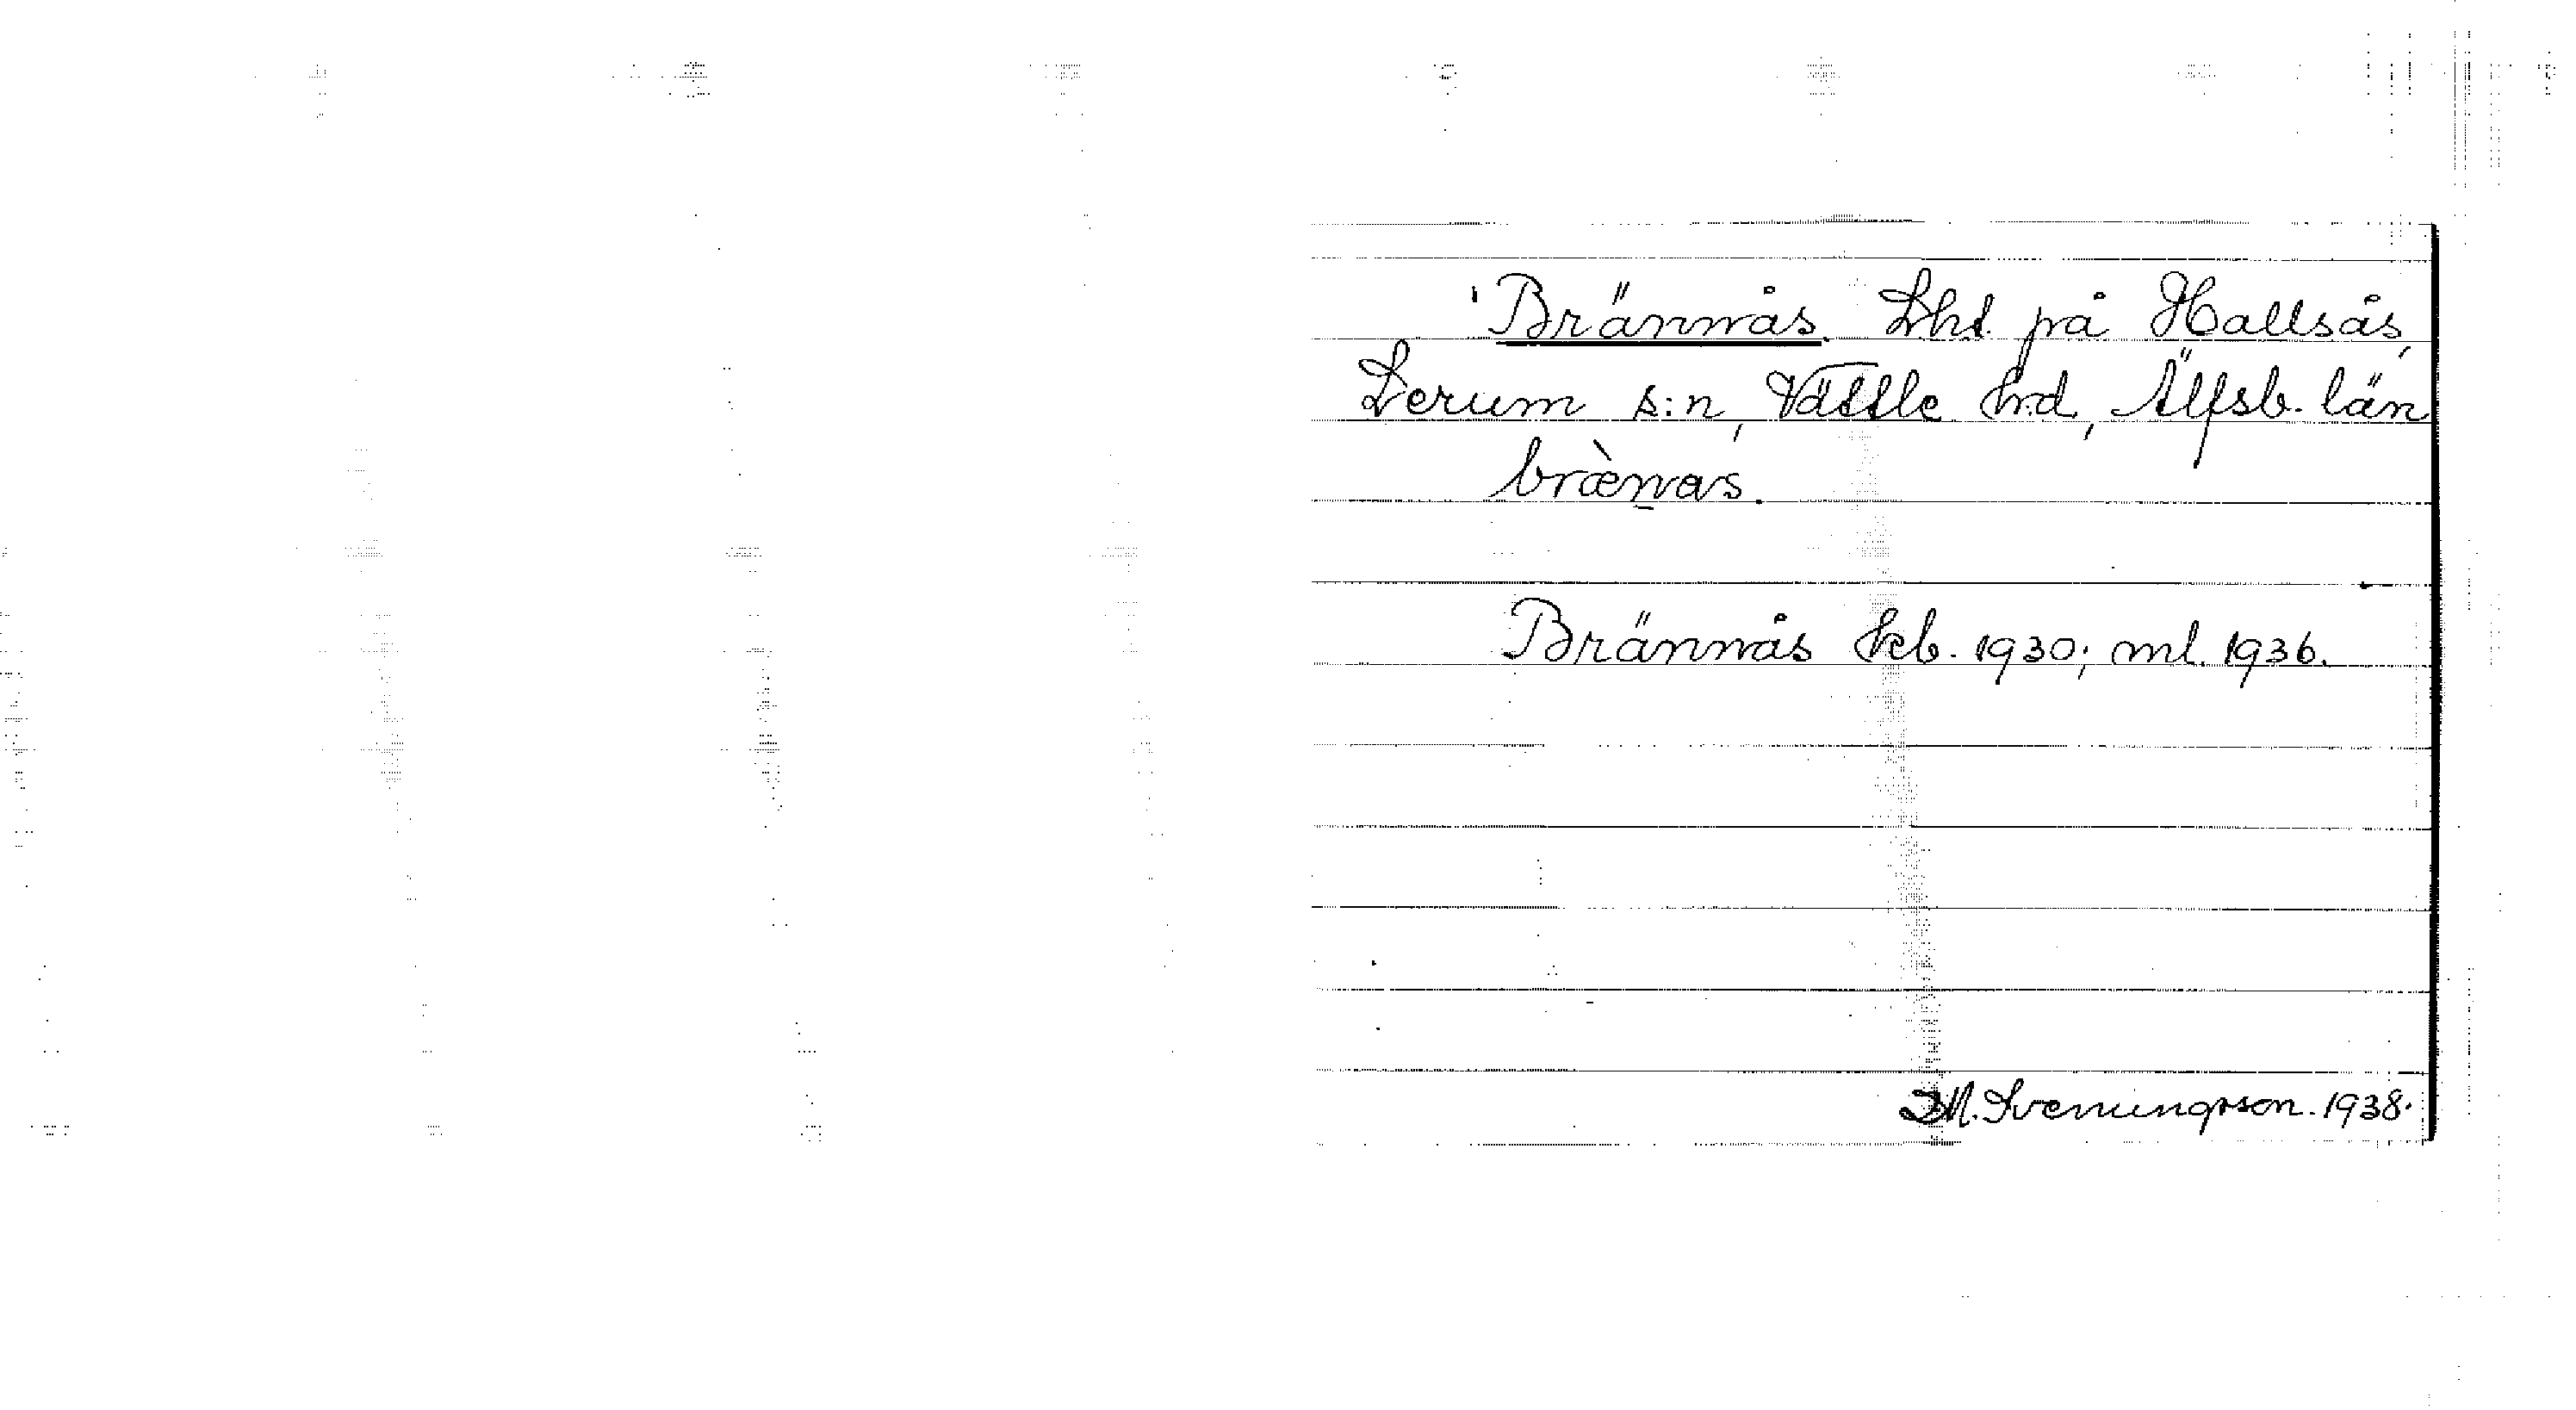 'Brännås. Lht. på Hallsås,
Lerum s:n, Vättle hd, Älfsb. län
brænas.
Brännås kb. 1930; ml. 1936.
Sveningsson. 1938.